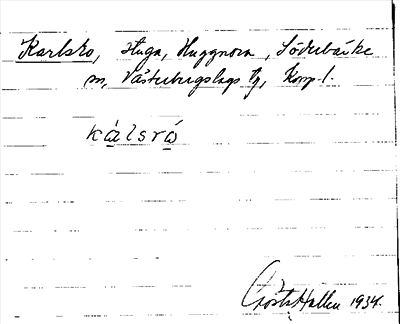 Karlsro, stuga, Huggnora, Söderbärke
sn, Västerbergslags tg, Kopp. l.
kàlsrò
Gösta Hallen 1934.